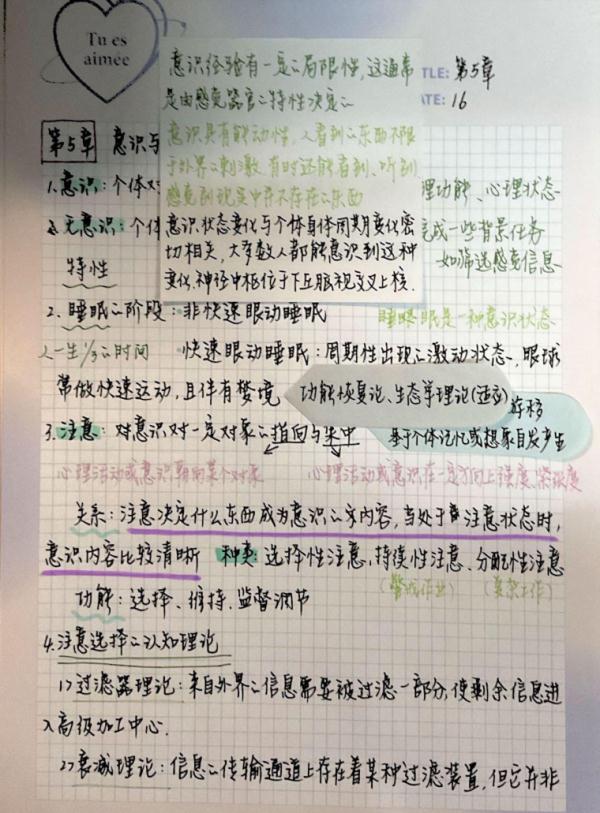 Tu es
aimée
意识经验有一定的局限性,这通常
是由感觉器官的特性决定的
意识具有能动性,人看到的东西不限
于外界的刺激,有时还能看到、听到
感觉到现实中并不存在的东西
意识状态变化与个体身体周期变化密
切相关,大多数人都能意识到这种
变化,神经中枢位于下丘脑视交叉上核.
TLE: 第5章
ATE: 16
第5章 意识与
1.意识:个体对
理功能、心理状态
2.无意识:个体
完成一些背景任务
特性
如筛选感觉信息
2.睡眠的阶段:非快速眼动睡眠
睡眠是一种意识状态
人一生1/3的时间
快速眼动睡眠:周期性出现的激动状态,眼球
常做快速运动,且伴有梦境
功能恢复论、生态学理论(适应)
3.注意:对意识对一定对象的指向与集中
基于个体记忆或想象自发产生
心理活动或意识朝向某个对象
心理活动或意识在一定方向上强度、紧张度
关系:注意决定什么东西成为意识的内容,当处于注意状态时,
意识内容比较清晰 种类:选择性注意、持续性注意、分配性注意
(警戒作业) (复杂工作)
功能:选择、维持、监督调节
4.注意选择的认知理论
1)过滤器理论:来自外界的信息需要被过滤一部分,使剩余信息进
入高级加工中心.
2)衰减理论:信息的传输通道上存在着某种过滤装置,但它并非